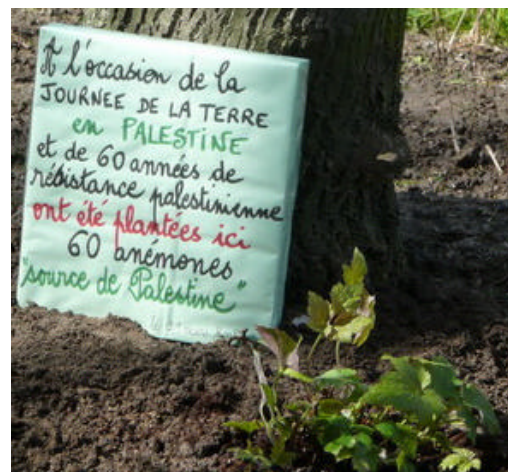 A l'occasion de la
JOURNEE DE LA TERRE
en PALESTINE
et de 60 années de
résistance palestinienne
ont été plantées ici
60 anémones
"source de Palestine"